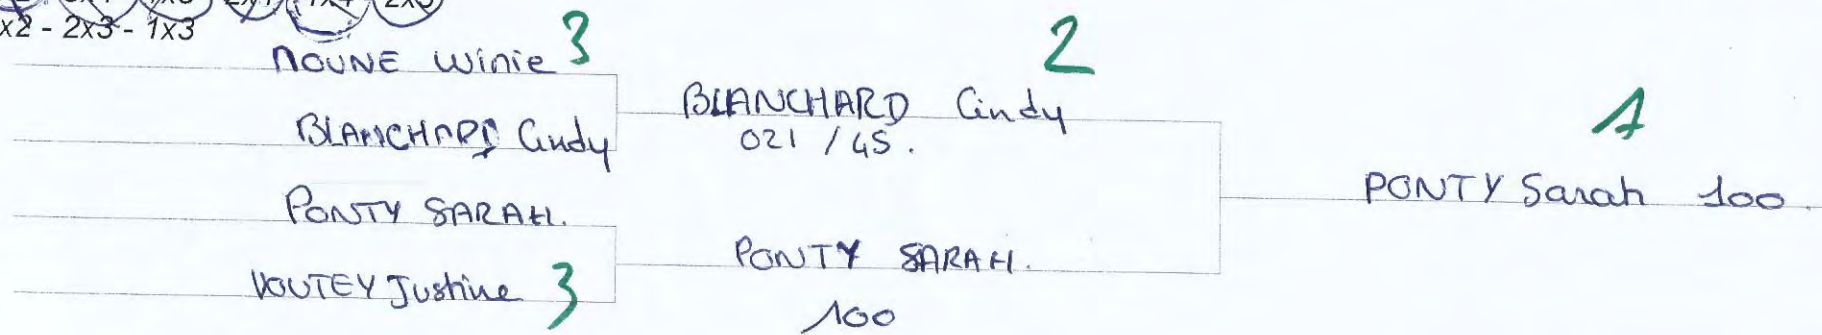 x2 - 2x3 - 1x3
NOUNE Winie 3
BLANCHARD Cindy
PONTY SARAH.
VOUTEY Justine 3
2
BLANCHARD Cindy
021 / 45.
PONTY SARAH.
100
1
PONTY Sarah 100.